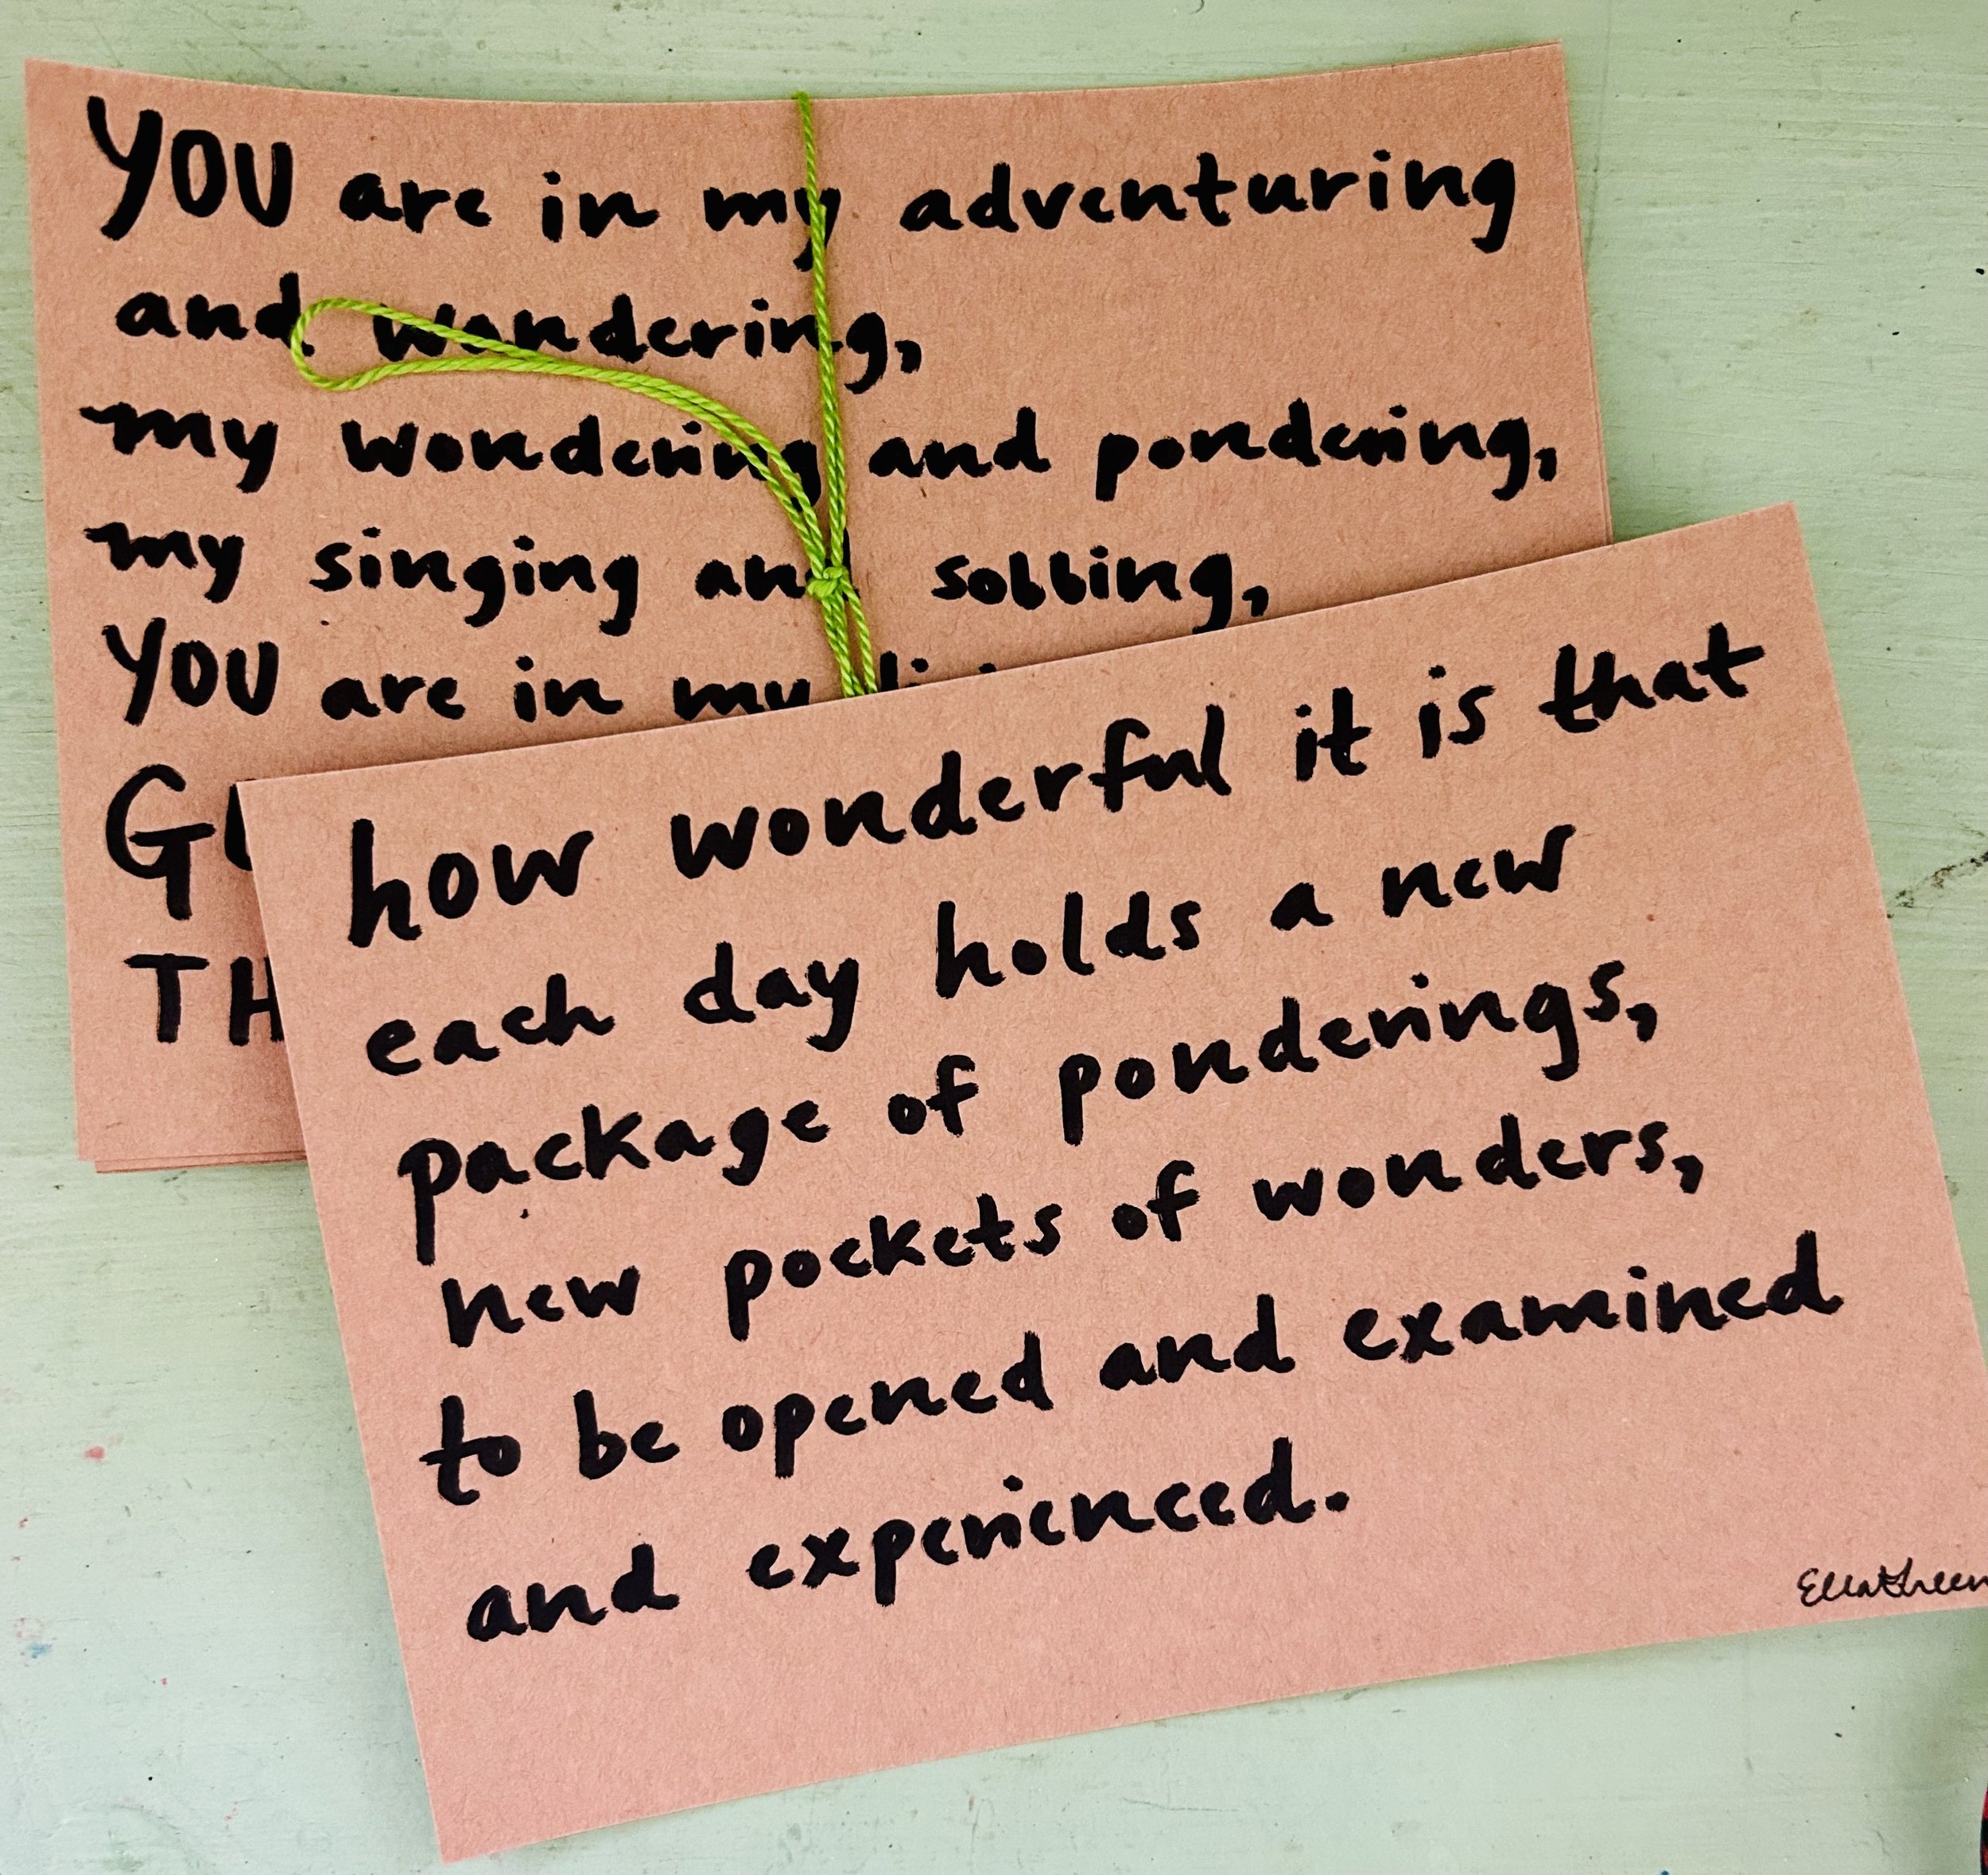 YOU are in my adventuring
and wondering,
my wondering and pondering,
my singing and sobbing,
YOU are in my
how wonderful it is that
each day holds a new
package of ponderings,
new pockets of wonders,
to be opened and examined
and experienced.